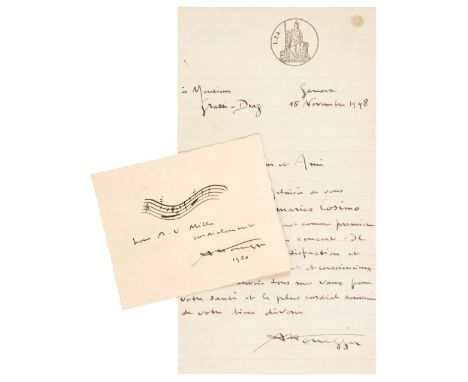 L.24
à Monsieur
Grassi-Diaz
Genova
15 Novembre 1948
et Ami
de vous
Cosimo
comme premier
concert - Il
et
et
tous mes vœux pour
votre santé et le plus cordial souvenir
de votre bien dévoué
AHonegger
pour A. V Miller
cordialement
AHonegger
1950